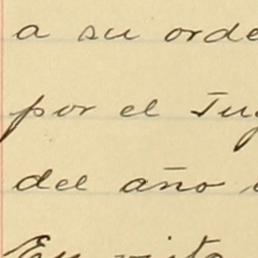 a su orde
por el Jug
del año
En vista